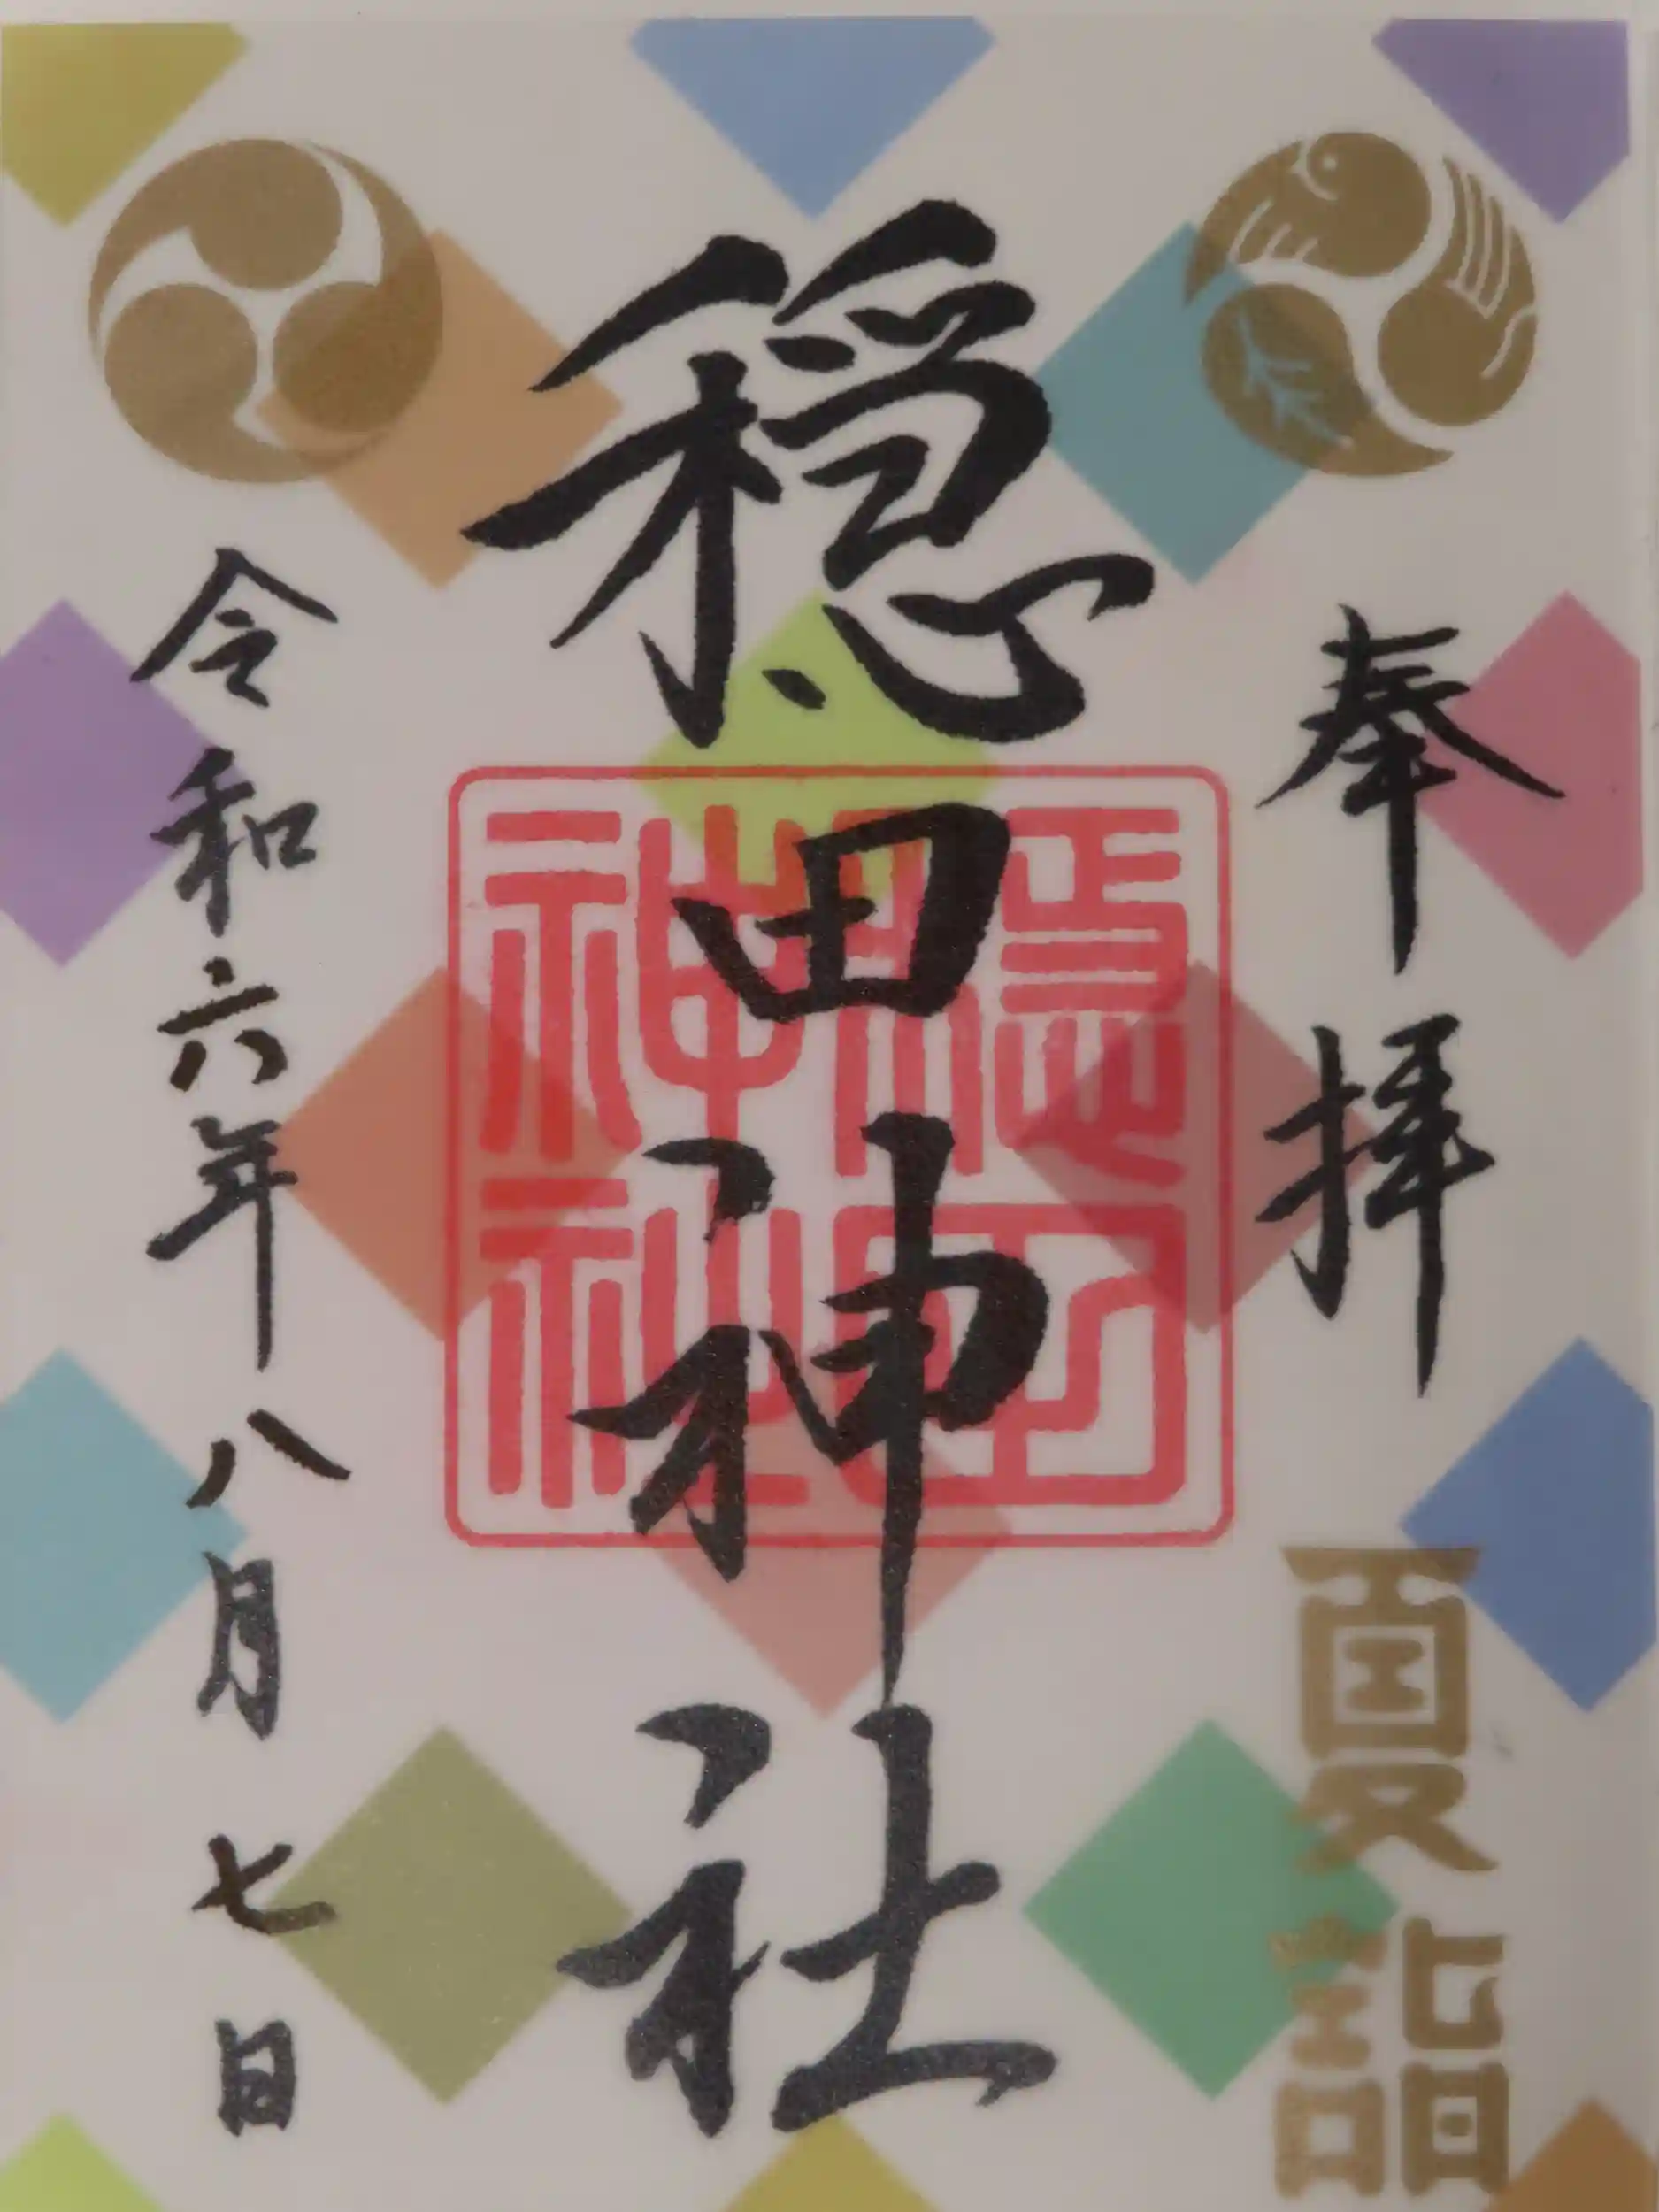 奉拝
夏詣
穏田神社
穏田
神社
令和六年八月七日